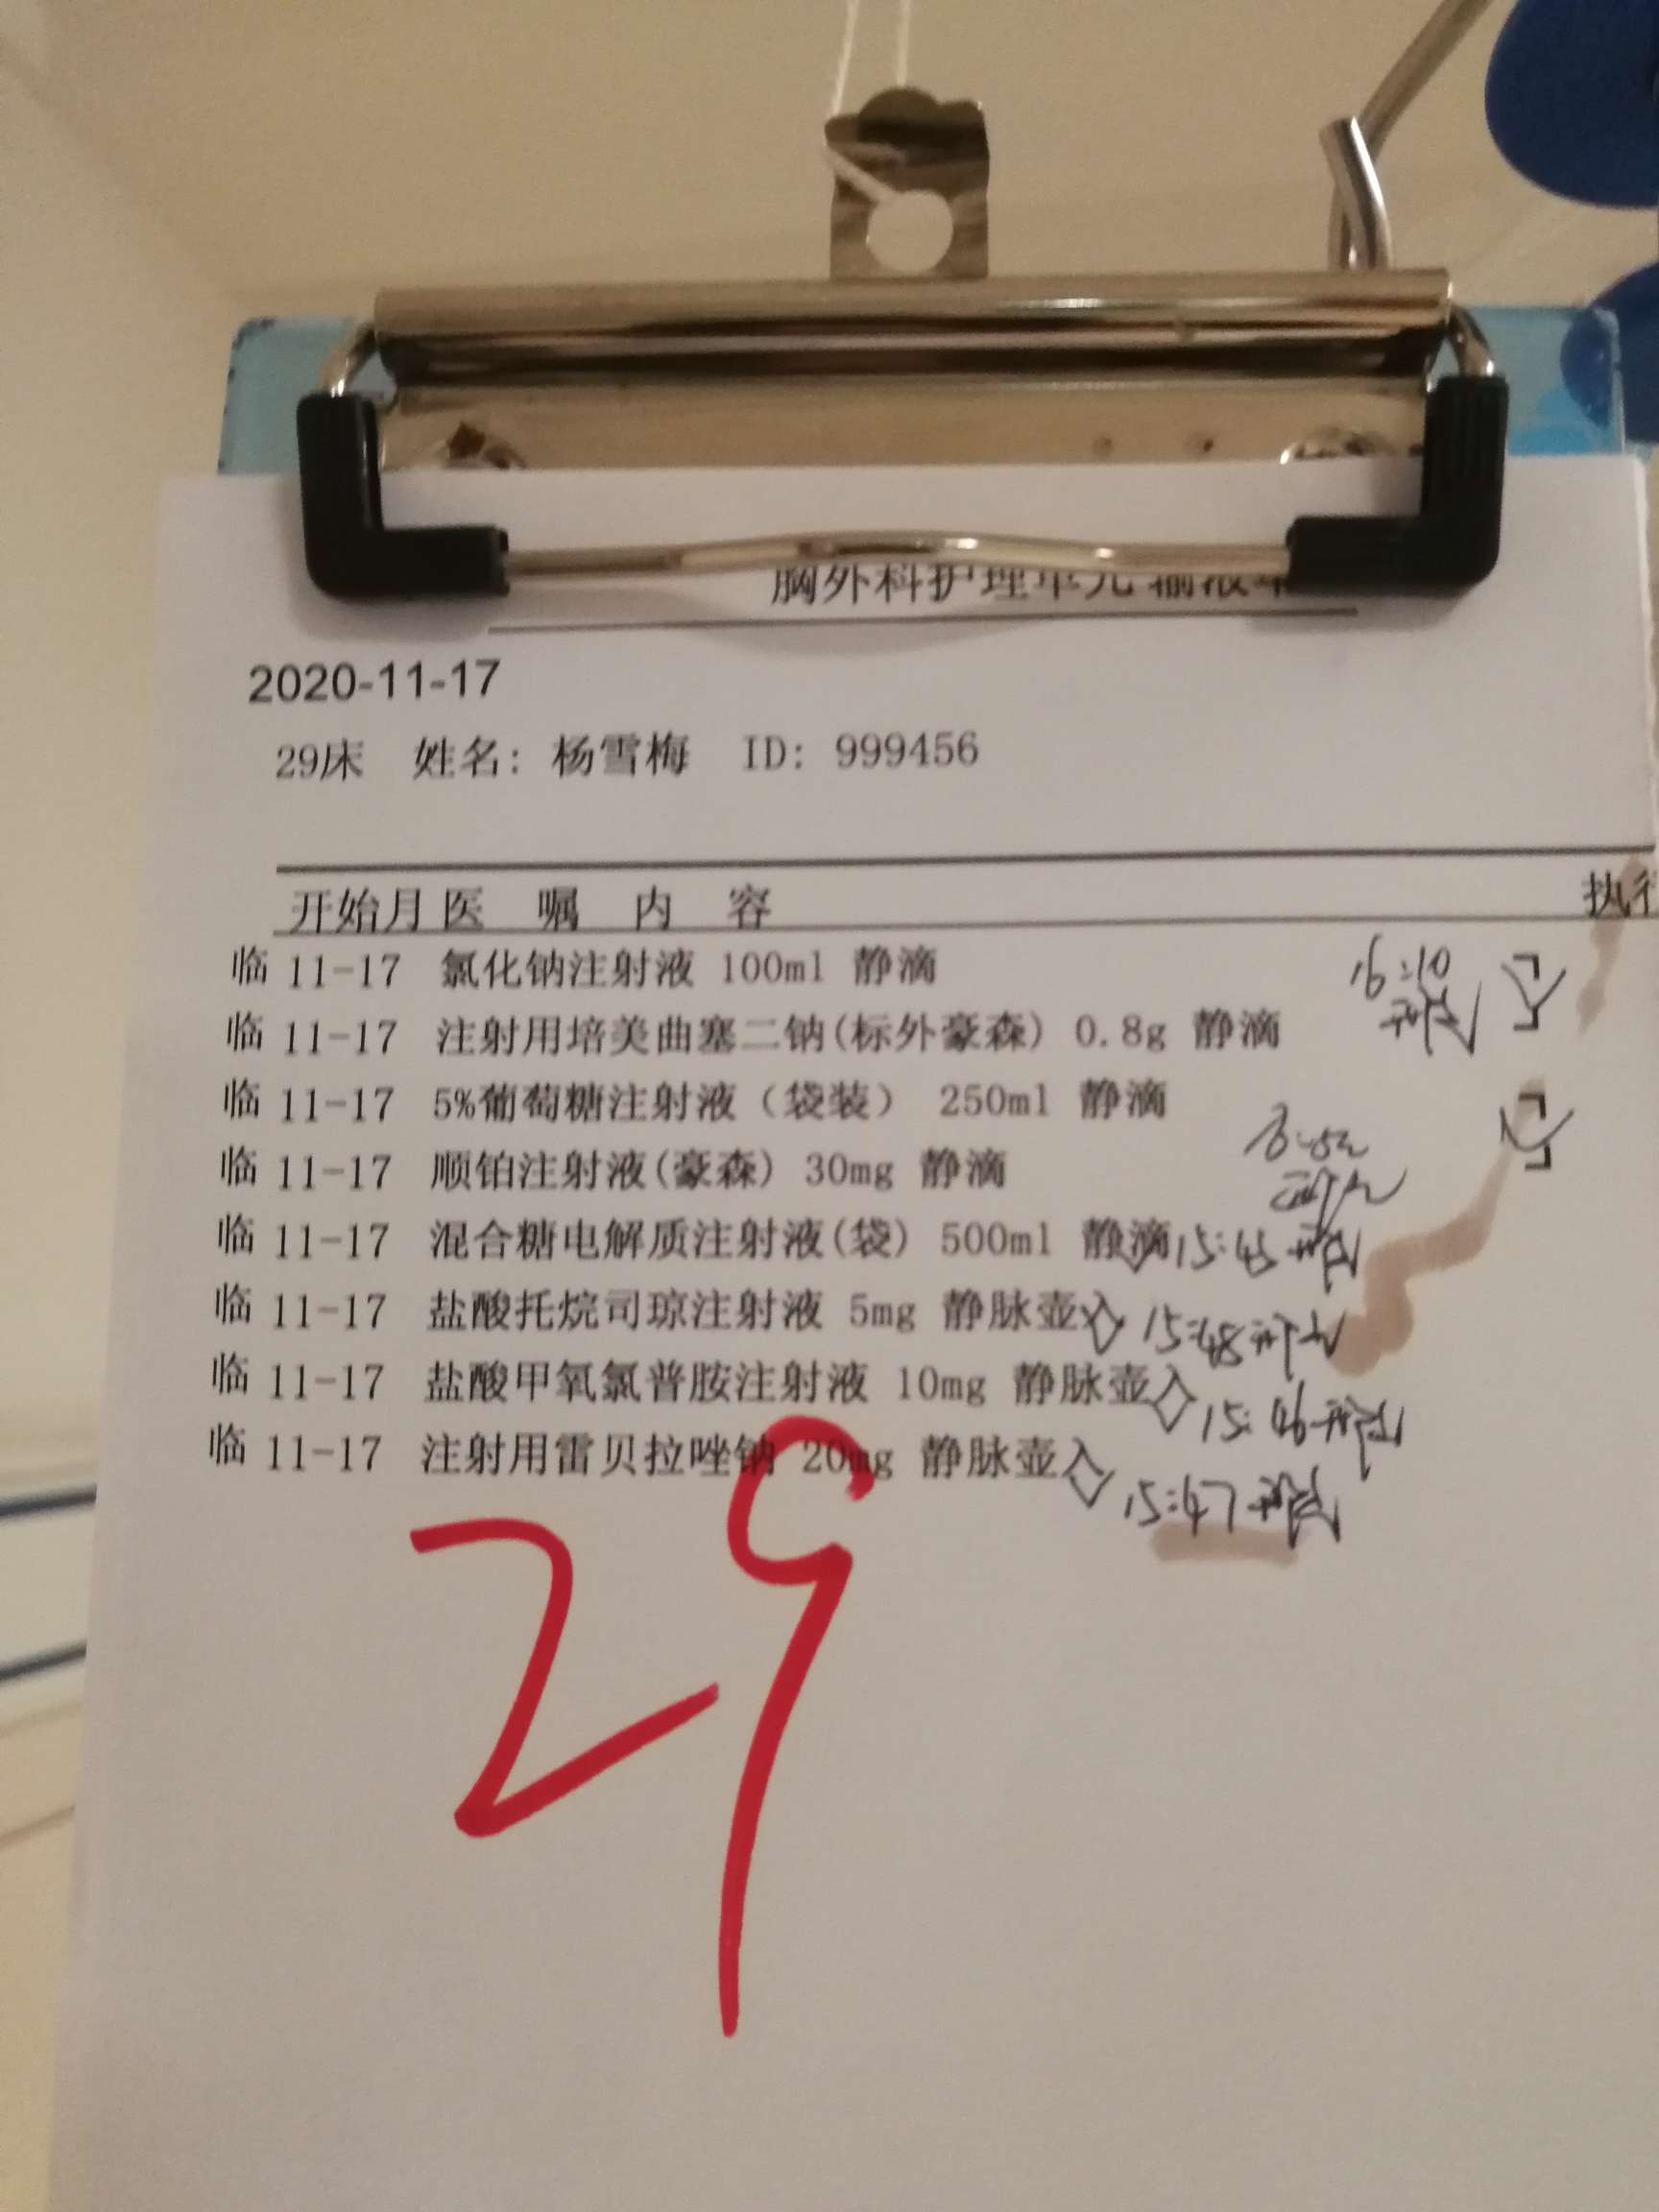 胸外科护理单元 输液单
2020-11-17
29床 姓名: 杨雪梅 ID: 999456
开始月 医 嘱 内 容 执行
临 11-17 氯化钠注射液 100ml 静滴 16:10
临 11-17 注射用培美曲塞二钠(标外豪森) 0.8g 静滴
临 11-17 5%葡萄糖注射液（袋装） 250ml 静滴
临 11-17 顺铂注射液(豪森) 30mg 静滴
临 11-17 混合糖电解质注射液(袋) 500ml 静滴 15:45
临 11-17 盐酸托烷司琼注射液 5mg 静脉壶入 15:48
临 11-17 盐酸甲氧氯普胺注射液 10mg 静脉壶入 15:46
临 11-17 注射用雷贝拉唑钠 20mg 静脉壶入 15:47
29